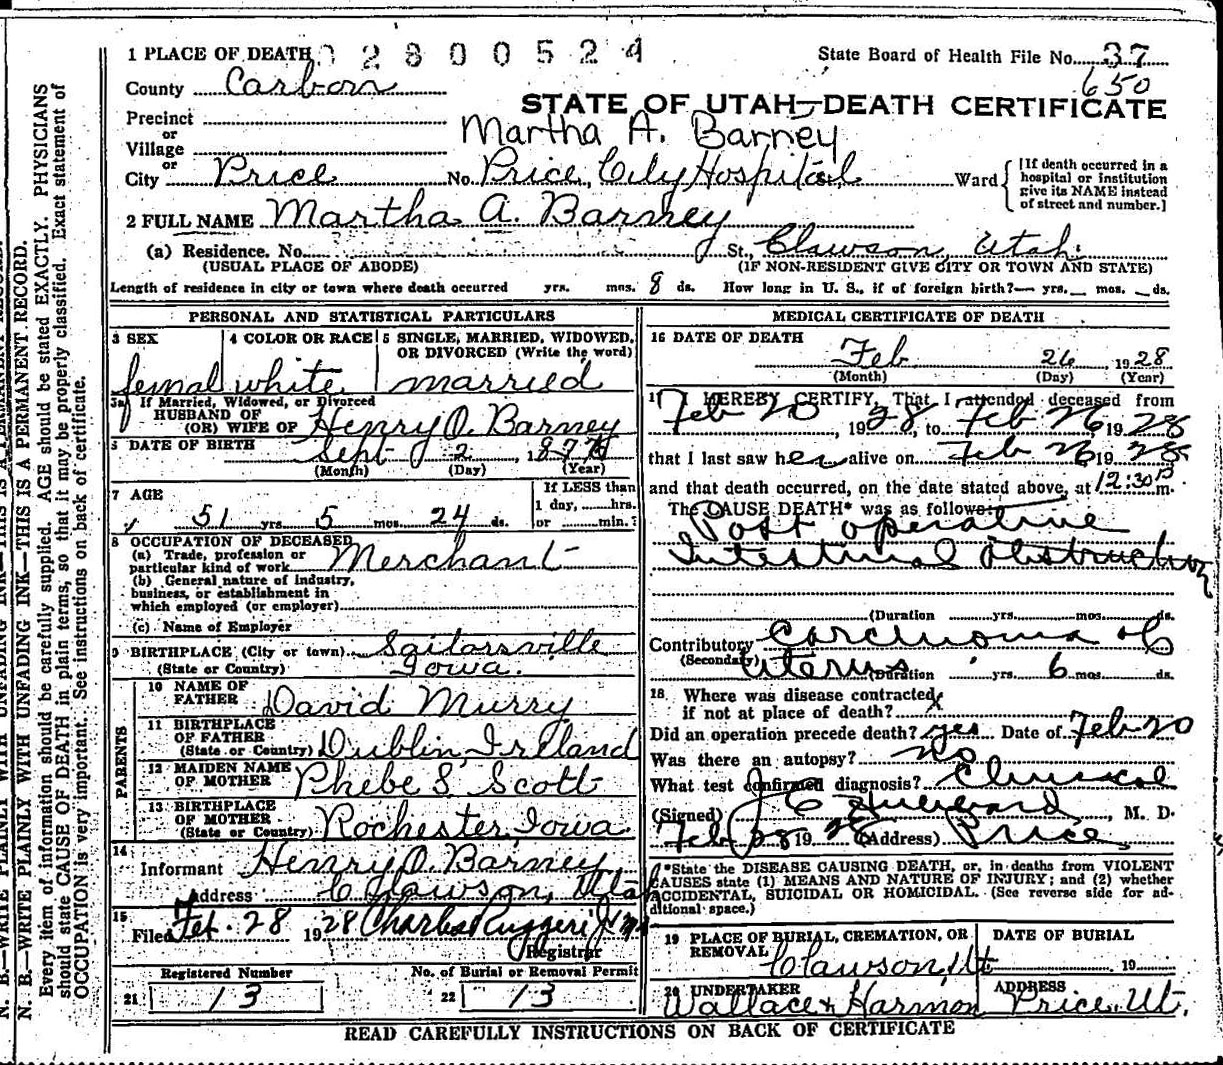 1 PLACE OF DEATH 02800524
State Board of Health File No. 37
650
County Carbon
STATE OF UTAH—DEATH CERTIFICATE
Precinct
or
Martha A. Barney
Village
or
City Price No. Price City Hospital Ward
[If death occurred in a
hospital or institution
give its NAME instead
of street and number.]
2 FULL NAME Martha A. Barney
(a) Residence. No. St., Clawson, Utah.
(USUAL PLACE OF ABODE) (IF NON-RESIDENT GIVE CITY OR TOWN AND STATE)
Length of residence in city or town where death occurred yrs. mos. 8 ds. How long in U. S., if of foreign birth?— yrs. mos. ds.
PERSONAL AND STATISTICAL PARTICULARS
3 SEX 4 COLOR OR RACE 5 SINGLE, MARRIED, WIDOWED,
OR DIVORCED (Write the word)
femal white married
3a If Married, Widowed, or Divorced
HUSBAND OF
(OR) WIFE OF Henry O. Barney
DATE OF BIRTH Sept 2, 187
(Month) (Day) (Year)
7 AGE If LESS than
1 day,......hrs.
51 yrs. 5 mos. 24 ds. or ......min.?
8 OCCUPATION OF DECEASED
(a) Trade, profession or
particular kind of work Merchant
(b) General nature of industry,
business, or establishment in
which employed (or employer)
(c) Name of Employer
9 BIRTHPLACE (City or town) Saitorsville
(State or Country) Iowa.
PARENTS
10 NAME OF
FATHER David Murry
11 BIRTHPLACE
OF FATHER
(State or Country) Dublin, Ireland
12 MAIDEN NAME
OF MOTHER Phebe S. Scott
13 BIRTHPLACE
OF MOTHER
(State or Country) Rochester, Iowa
14
Informant Henry O. Barney
Address Clawson, Utah
15
Filed Feb. 28 1928 Charles Ruggeri Jr
Registrar
Registered Number No. of Burial or Removal Permit
21 13 22 13
MEDICAL CERTIFICATE OF DEATH
16 DATE OF DEATH
Feb 26, 1928
(Month) (Day) (Year)
17 I HEREBY CERTIFY, That I attended deceased from
Feb 20, 1928, to Feb 26 1928
that I last saw her alive on Feb 26 1928
and that death occurred, on the date stated above, at 12:30 P m.
The CAUSE DEATH* was as follows:
Post operative
Intestinal obstruction
(Duration yrs. mos. ds.
Contributory Carcinoma of
(Secondary) Uterus (Duration yrs. 6 mos. ds.
18 Where was disease contracted
if not at place of death?
Did an operation precede death? yes Date of Feb 20
Was there an autopsy? No
What test confirmed diagnosis? Clinical
(Signed) J C Hubbard, M. D.
Feb 28 1928 (Address) Price
*State the DISEASE CAUSING DEATH, or, in deaths from VIOLENT
CAUSES state (1) MEANS AND NATURE OF INJURY; and (2) whether
ACCIDENTAL, SUICIDAL OR HOMICIDAL. (See reverse side for ad-
ditional space.)
19 PLACE OF BURIAL, CREMATION, OR
REMOVAL Clawson, Ut
DATE OF BURIAL
19
20 UNDERTAKER
Wallace & Harmon
ADDRESS
Price, Ut.
READ CAREFULLY INSTRUCTIONS ON BACK OF CERTIFICATE
N. B.—WRITE PLAINLY WITH UNFADING INK—THIS IS A PERMANENT RECORD.
N. B.—WRITE PLAINLY WITH UNFADING INK—THIS IS A PERMANENT RECORD.
Every item of information should be carefully supplied. AGE should be stated EXACTLY. PHYSICIANS
should state CAUSE OF DEATH in plain terms, so that it may be properly classified. Exact statement of
OCCUPATION is very important. See instructions on back of certificate.